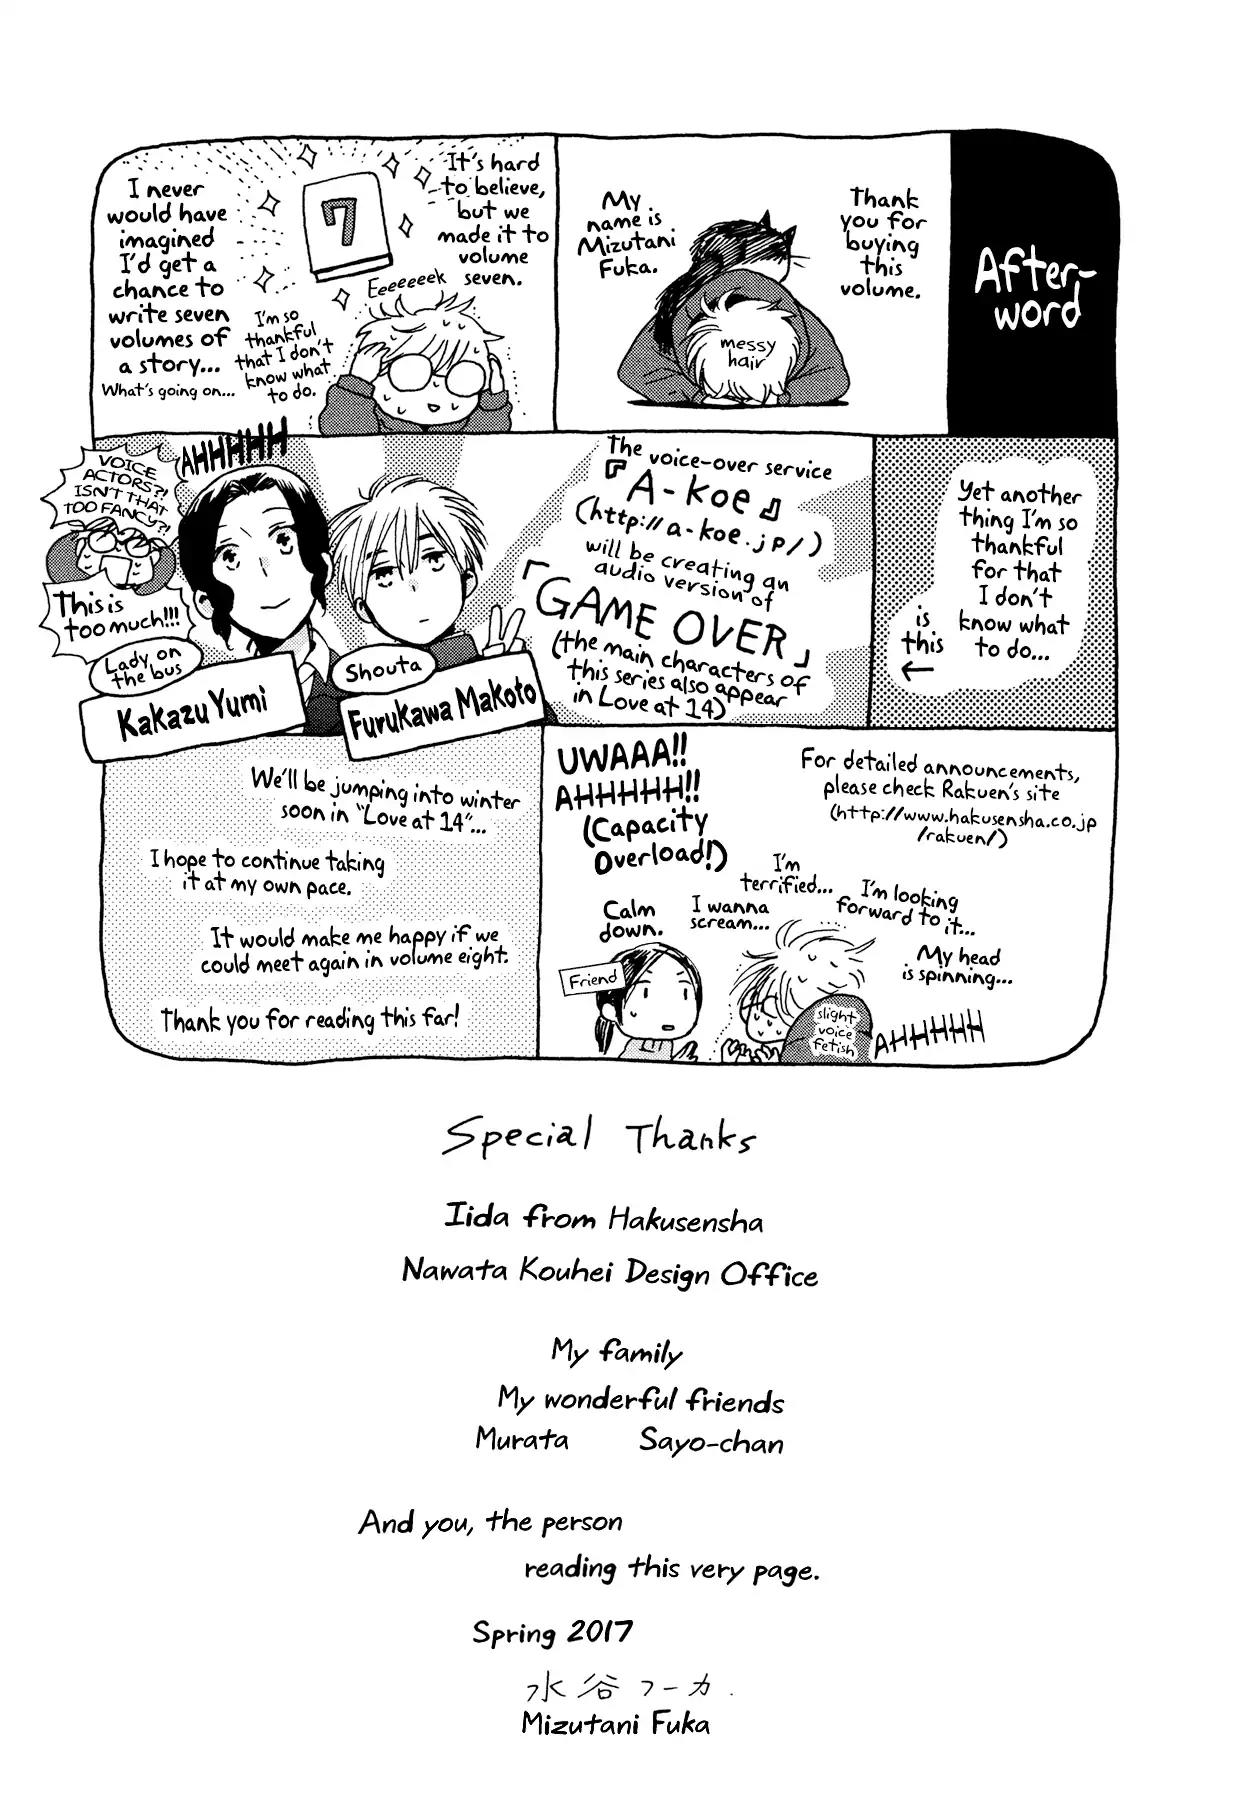 After-
word
Thank
you for
buying
this
volume.
My
name is
Mizutani
Fuka.
messy
hair
It's hard
to believe,
but we
made it to
volume
seven.
7
Eeeeeeek
I'm so
thankful
that I don't
know what
to do.
I never
would have
imagined
I'd get a
chance to
write seven
volumes of
a story...
What's going on...
Yet another
thing I'm so
thankful
for that
I don't
know what
to do...
is
this
←
The voice-over service
『A-koe』
(http://a-koe.jp/)
will be creating an
audio version of
「GAME OVER」
(the main characters of
this series also appear
in Love at 14)
Shouta
Furukawa Makoto
Lady on
the bus
Kakazu Yumi
AHHHHH
VOICE
ACTORS?!
ISN'T THAT
TOO FANCY?!
This is
too much!!!
For detailed announcements,
please check Rakuen's site
(http://www.hakusensha.co.jp
/rakuen/)
UWAAA!!
AHHHHH!!
(Capacity
Overload!)
I'm
terrified...
I'm looking
forward to it...
I wanna
scream...
My head
is spinning...
Calm
down.
Friend
slight
voice
fetish
AHHHHH
We'll be jumping into winter
soon in "Love at 14"...
I hope to continue taking
it at my own pace.
It would make me happy if we
could meet again in volume eight.
Thank you for reading this far!
Special Thanks
Iida from Hakusensha
Nawata Kouhei Design Office
My family
My wonderful friends
Murata Sayo-chan
And you, the person
reading this very page.
Spring 2017
水谷フーカ.
Mizutani Fuka